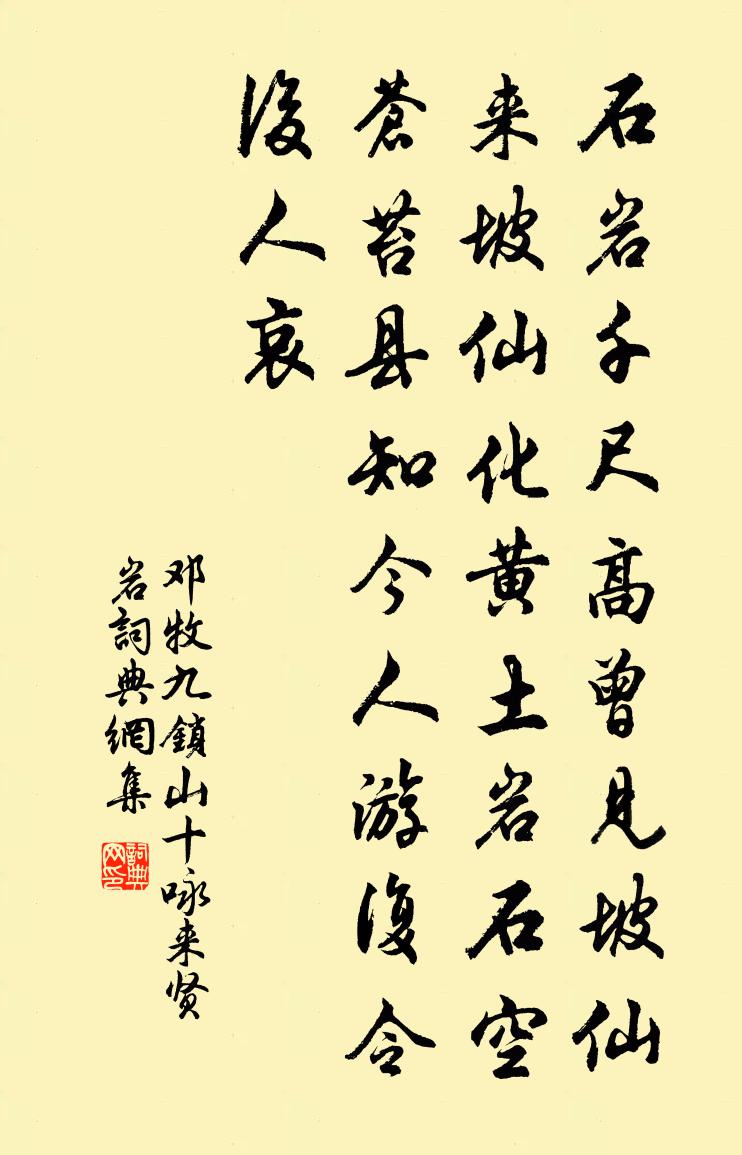 石岩千尺高曾見坡仙
来坡仙化黄土岩石空
蒼苔县知今人游復令
後人哀
邓牧九鎖山十咏来贤
岩詞典網集
詞典
网印